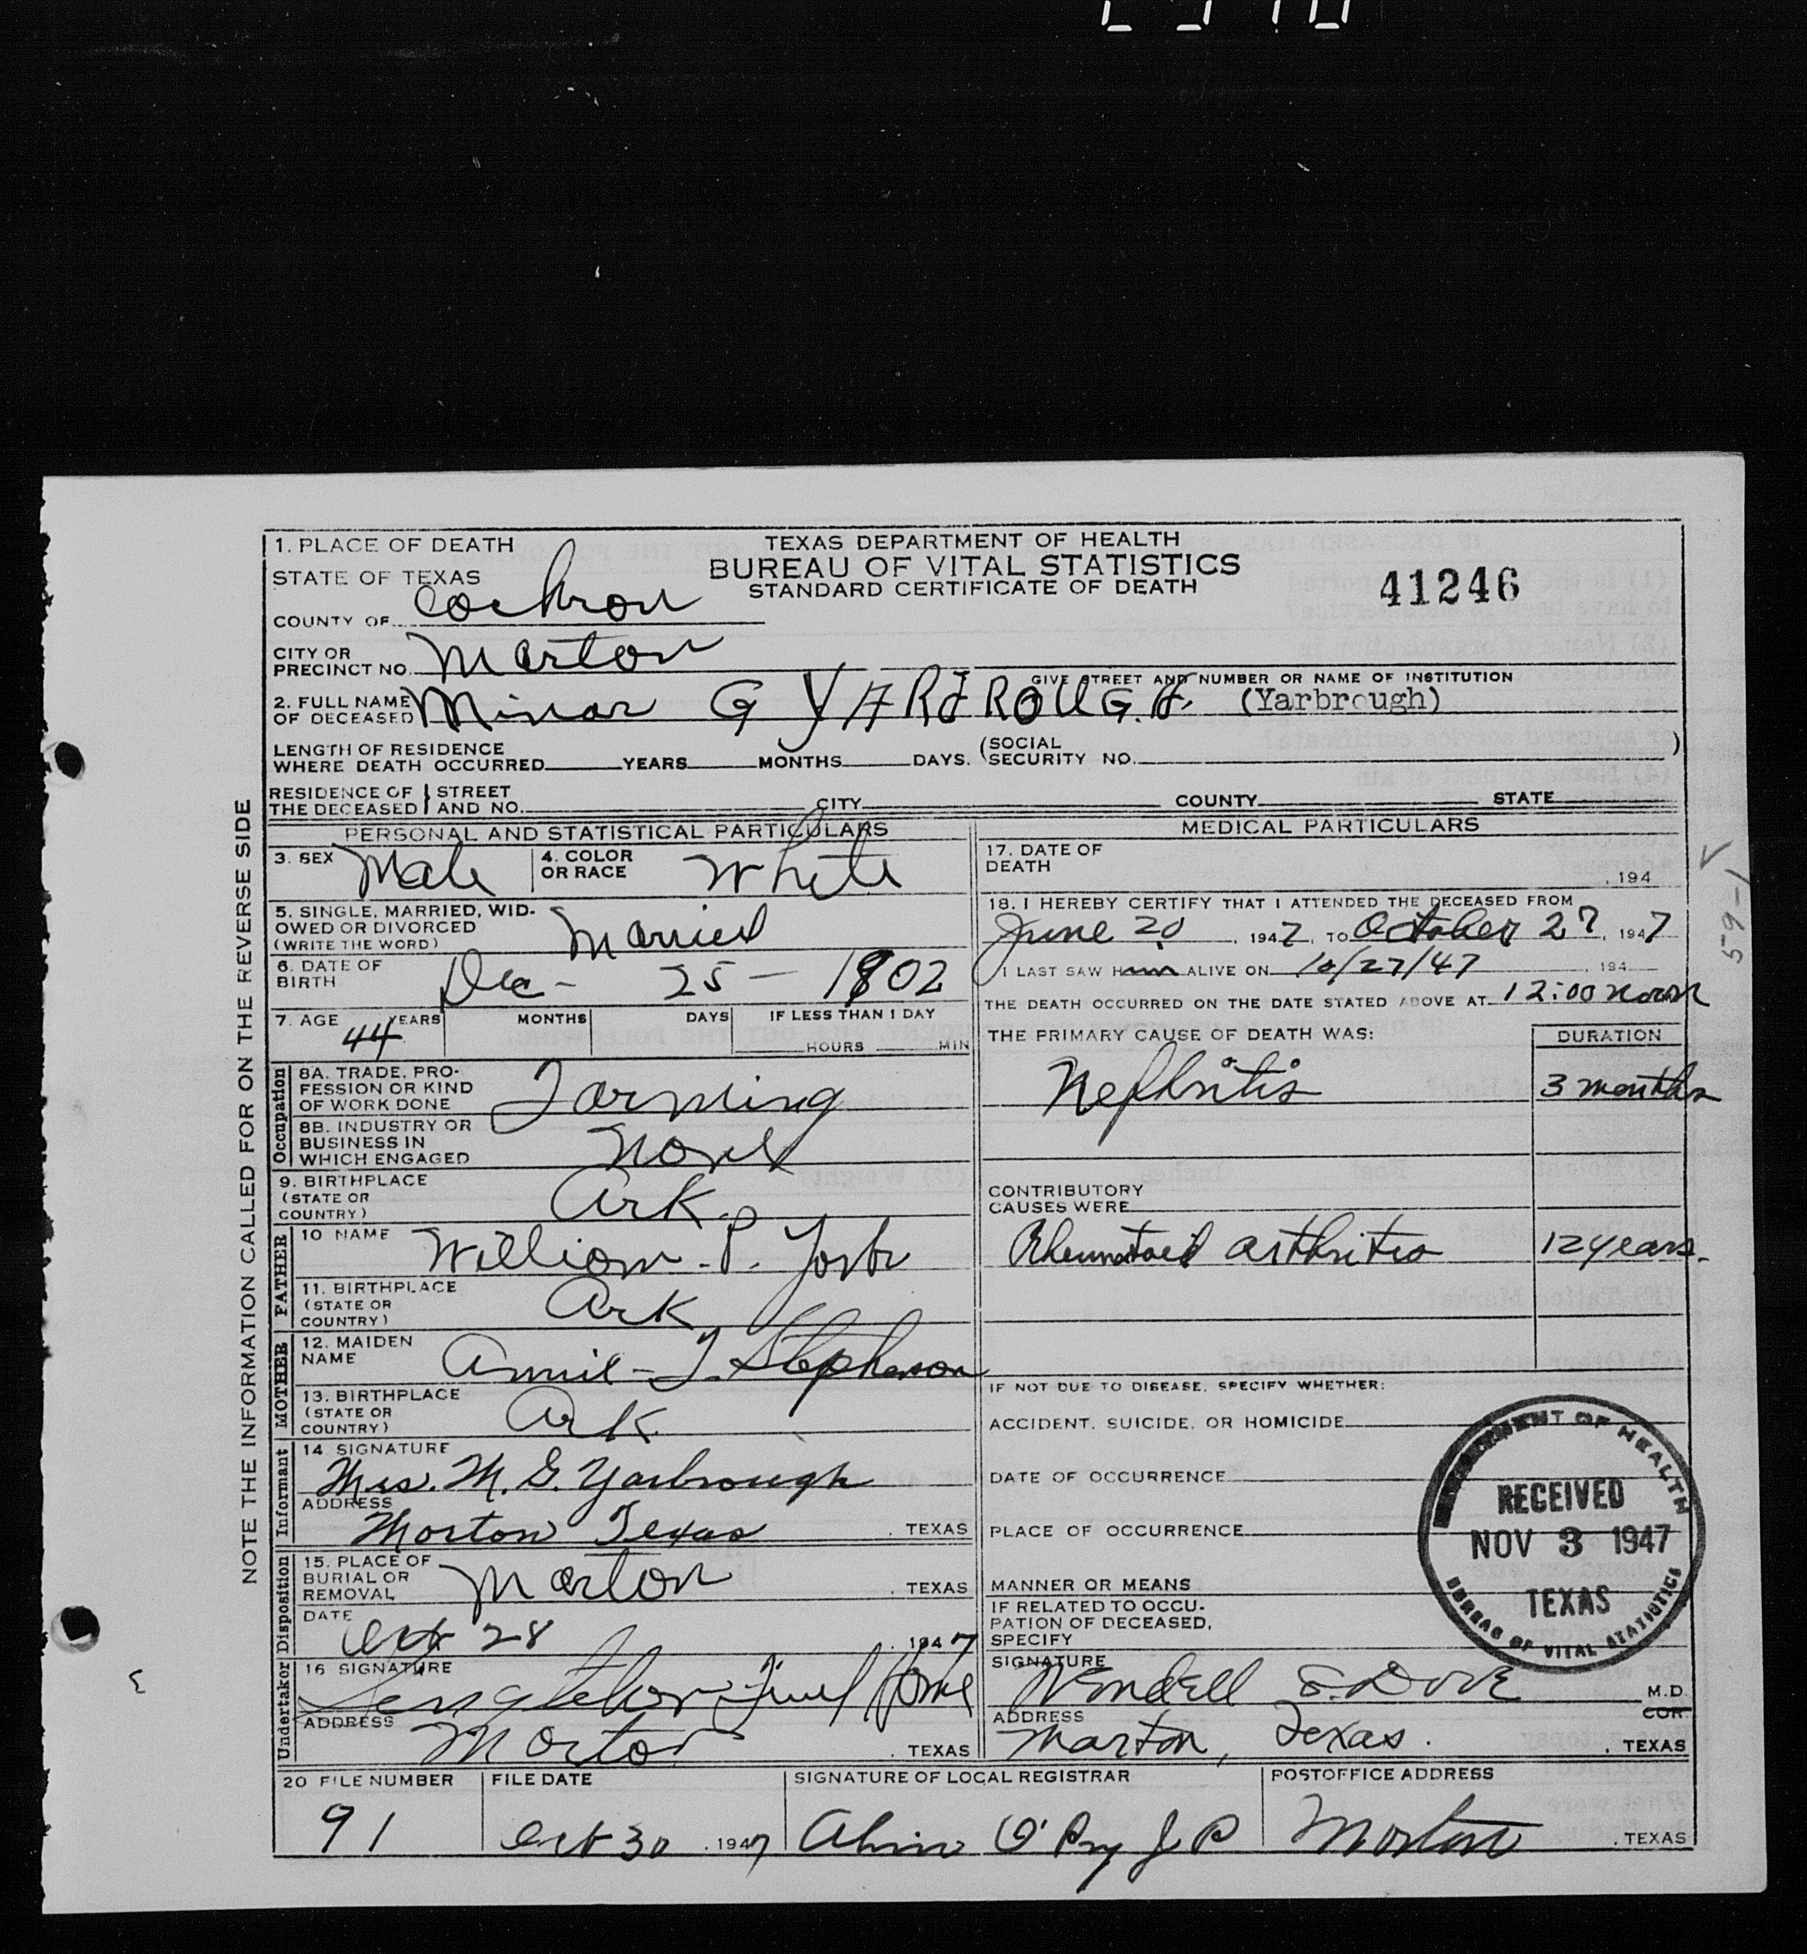 1. PLACE OF DEATH
STATE OF TEXAS
COUNTY OF Cochron
TEXAS DEPARTMENT OF HEALTH
BUREAU OF VITAL STATISTICS
STANDARD CERTIFICATE OF DEATH
41246
CITY OR
PRECINCT NO. Morton
GIVE STREET AND NUMBER OR NAME OF INSTITUTION
2. FULL NAME
OF DECEASED Minor G YARBROUGH (Yarbrough)
LENGTH OF RESIDENCE
WHERE DEATH OCCURRED YEARS MONTHS DAYS. (SOCIAL SECURITY NO. )
RESIDENCE OF THE DECEASED STREET AND NO. CITY COUNTY STATE
NOTE THE INFORMATION CALLED FOR ON THE REVERSE SIDE
PERSONAL AND STATISTICAL PARTICULARS
3. SEX Male 4. COLOR OR RACE White
5. SINGLE, MARRIED, WID-
OWED OR DIVORCED
(WRITE THE WORD) Married
6. DATE OF
BIRTH Dec - 25 - 1902
7. AGE 44 YEARS MONTHS DAYS IF LESS THAN 1 DAY
HOURS MIN
Occupation
8A. TRADE, PRO-
FESSION OR KIND
OF WORK DONE Farming
8B. INDUSTRY OR
BUSINESS IN
WHICH ENGAGED None
9. BIRTHPLACE
(STATE OR
COUNTRY) Ark.
FATHER
10 NAME William P. Yorbr
11. BIRTHPLACE
(STATE OR
COUNTRY) Ark
MOTHER
12. MAIDEN
NAME Annie - T. Stephenson
13. BIRTHPLACE
(STATE OR
COUNTRY) Ark.
Informant
14 SIGNATURE
Mrs. M. G. Yarbrough
ADDRESS
Morton Texas , TEXAS
Disposition
15. PLACE OF
BURIAL OR
REMOVAL Morton , TEXAS
DATE
Oct 28 , 1947
Undertaker
16 SIGNATURE
Singleton Funl Home
ADDRESS
Morton , TEXAS
MEDICAL PARTICULARS
17. DATE OF
DEATH , 194
18. I HEREBY CERTIFY THAT I ATTENDED THE DECEASED FROM
June 20 , 1947, TO October 27, 1947
I LAST SAW Him ALIVE ON 10/27/47 , 194
THE DEATH OCCURRED ON THE DATE STATED ABOVE AT 12:00 noon
THE PRIMARY CAUSE OF DEATH WAS: DURATION
Nephritis 3 months
CONTRIBUTORY
CAUSES WERE
Rheumatoid arthritis 12 years.
IF NOT DUE TO DISEASE, SPECIFY WHETHER:
ACCIDENT, SUICIDE, OR HOMICIDE
DATE OF OCCURRENCE
PLACE OF OCCURRENCE
MANNER OR MEANS
IF RELATED TO OCCU-
PATION OF DECEASED,
SPECIFY
SIGNATURE
Wendell S. Dove M.D.
COR
ADDRESS
Morton, Texas. , TEXAS
DEPARTMENT OF HEALTH
RECEIVED
NOV 3 1947
TEXAS
BUREAU OF VITAL STATISTICS
59-1
20 FILE NUMBER FILE DATE SIGNATURE OF LOCAL REGISTRAR POSTOFFICE ADDRESS
91 Oct 30 , 1947 J P Morton , TEXAS